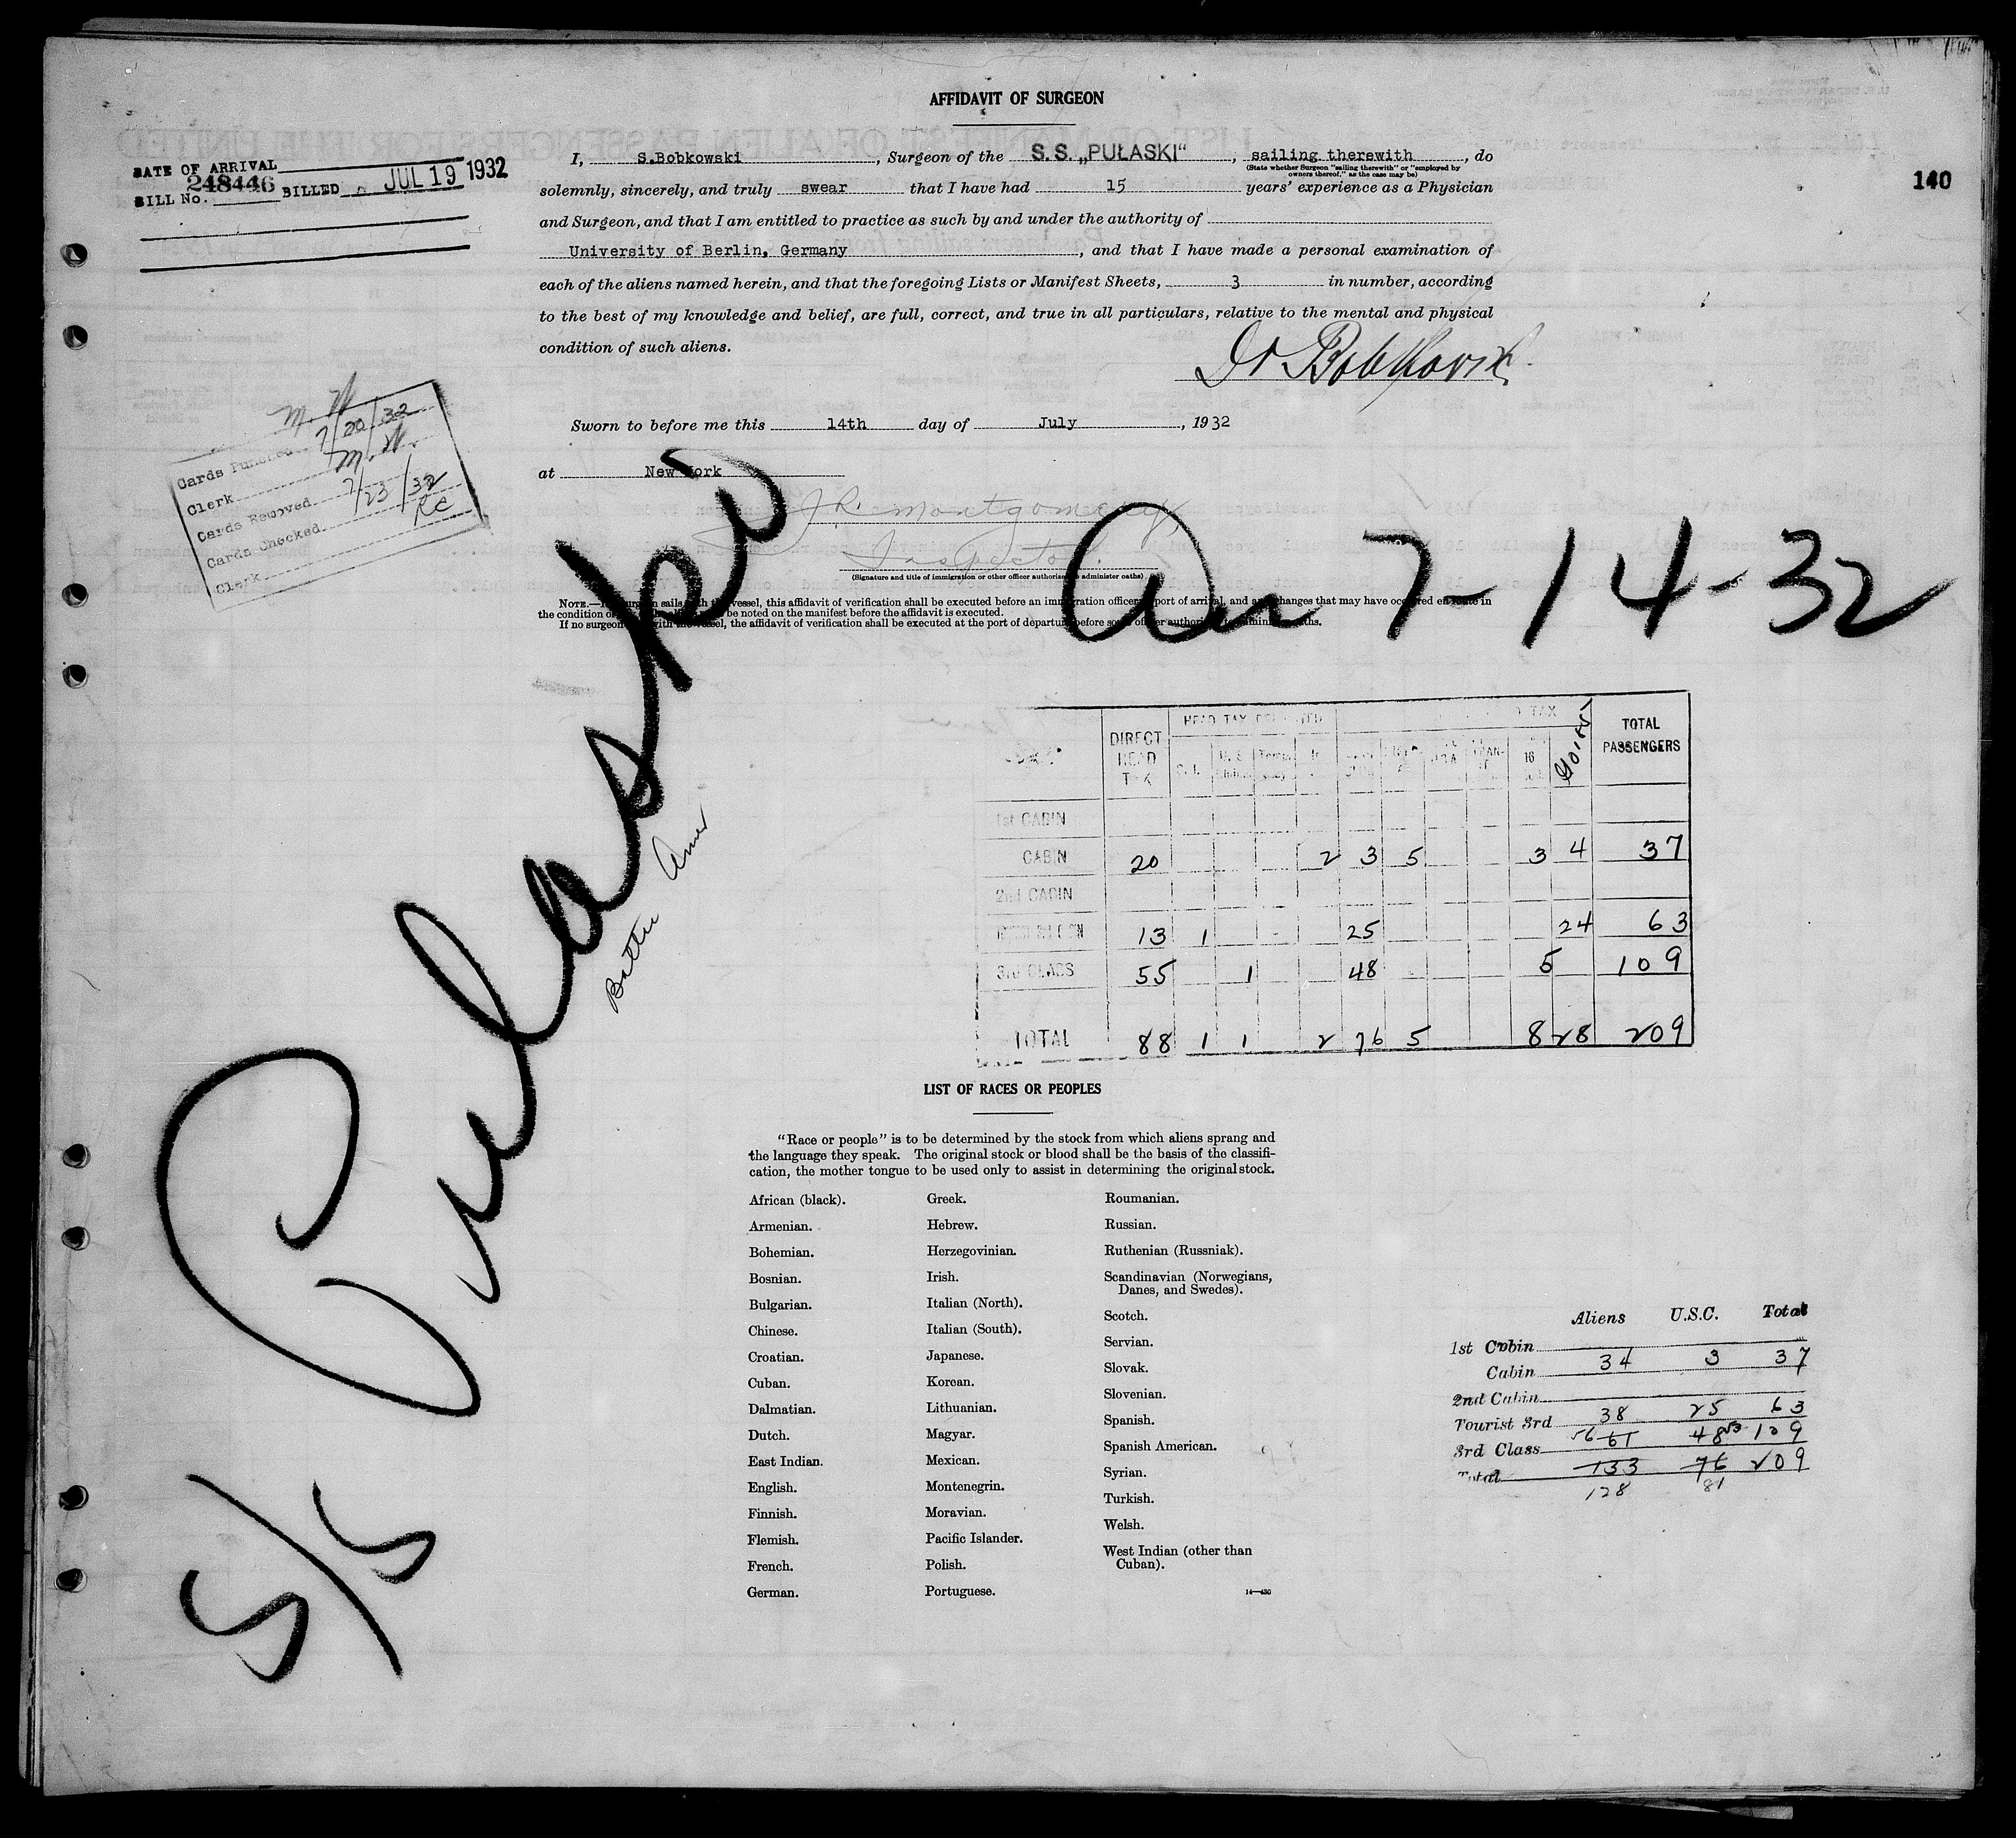 AFFIDAVIT OF SURGEON
DATE OF ARRIVAL
248446
BILL No. BILLED JUL 19 1932
140
I, S.Bobkowski, Surgeon of the S. S. „PUŁASKI“, sailing therewith, do
(State whether Surgeon "sailing therewith" or "employed by
owners thereof," as the case may be)
solemnly, sincerely, and truly swear that I have had 15 years' experience as a Physician
and Surgeon, and that I am entitled to practice as such by and under the authority of
University of Berlin, Germany, and that I have made a personal examination of
each of the aliens named herein, and that the foregoing Lists or Manifest Sheets, 3 in number, according
to the best of my knowledge and belief, are full, correct, and true in all particulars, relative to the mental and physical
condition of such aliens.
Dr Bobkowski
Sworn to before me this 14th day of July, 1932
at New York
J.R. Montgomery
Inspector.
(Signature and title of immigration or other officer authorized to administer oaths)
M. N.
Cards Punched 7/20/32
Clerk M. N.
Cards Removed 7/23/32
Cards Checked RC
Clerk
NOTE.—If surgeon sails with the vessel, this affidavit of verification shall be executed before an immigration officer port of arrival, and any changes that may have occurred en route in
the condition of be noted on the manifest before the affidavit is executed.
If no surgeon with the vessel, the affidavit of verification shall be executed at the port of departure before some officer authorized to administer oaths.
Arr 7-14-32
S/S Pulaski
DIRECT HEAD TAX
HEAD TAX
TAX
16
TOTAL PASSENGERS
1st CABIN
CABIN 20 2 3 5 3 4 37
2nd CABIN
13 1 25 24 63
3rd CLASS 55 1 48 5 109
TOTAL 88 1 1 2 76 5 8 28 209
LIST OF RACES OR PEOPLES
"Race or people" is to be determined by the stock from which aliens sprang and
the language they speak. The original stock or blood shall be the basis of the classifi-
cation, the mother tongue to be used only to assist in determining the original stock.
African (black).
Armenian.
Bohemian.
Bosnian.
Bulgarian.
Chinese.
Croatian.
Cuban.
Dalmatian.
Dutch.
East Indian.
English.
Finnish.
Flemish.
French.
German.
Greek.
Hebrew.
Herzegovinian.
Irish.
Italian (North).
Italian (South).
Japanese.
Korean.
Lithuanian.
Magyar.
Mexican.
Montenegrin.
Moravian.
Pacific Islander.
Polish.
Portuguese.
Roumanian.
Russian.
Ruthenian (Russniak).
Scandinavian (Norwegians,
Danes, and Swedes).
Scotch.
Servian.
Slovak.
Slovenian.
Spanish.
Spanish American.
Syrian.
Turkish.
Welsh.
West Indian (other than
Cuban).
14—430
Aliens U.S.C. Total
1st Cabin
Cabin 34 3 37
2nd Cabin
Tourist 3rd 38 25 63
3rd Class 56 61 48 53 109
Total 133 76 209
128 81